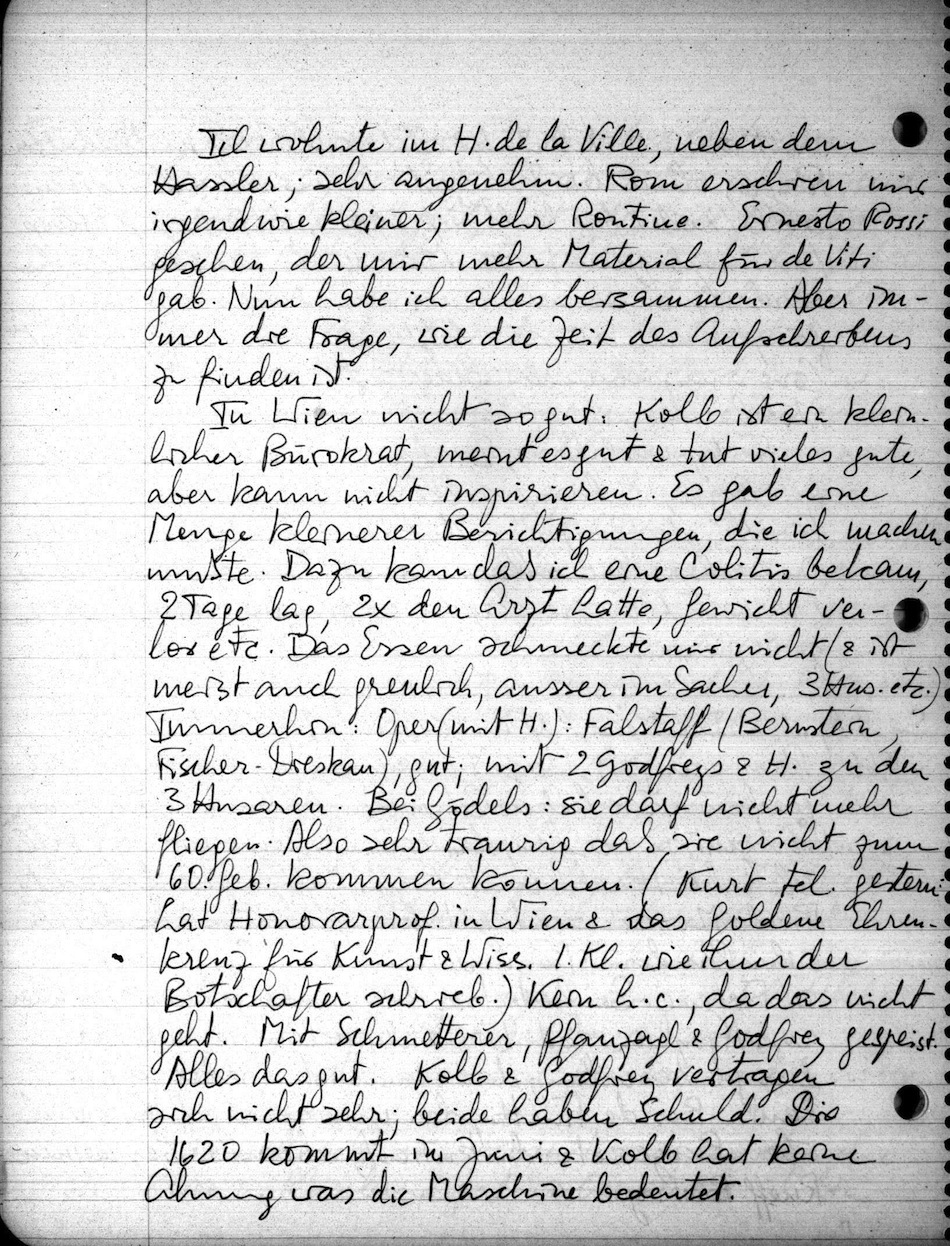 Ich wohnte im H. de la Ville, neben dem
Hassler; sehr angenehm. Rom erschien mir
irgendwie kleiner; mehr Routine. Ernesto Rossi
gesehen, der mir mehr Material für de Viti
gab. Nun habe ich alles beisammen. Aber im-
mer die Frage, wie die Zeit des Aufschreibens
zu finden ist.
In Wien nicht so gut: Kolb ist ein klein-
licher Bürokrat, meint es gut & tut vieles gute,
aber kann nicht inspirieren. Es gab eine
Menge kleinerer Berichtigungen, die ich machen
mußte. Dazu kam daß ich eine Colitis bekam,
2 Tage lag, 2x den Arzt hatte, Gewicht ver-
lor etc. Das Essen schmeckte mir nicht (& ist
meist auch greulich, ausser im Sacher, 3 Hus. etc.)
Immerhin: Oper (mit H.): Falstaff (Bernstein,
Fischer-Dieskau), gut; mit 2 Godfreys & H. zu den
3 Husaren. Bei Gödels: sie darf nicht mehr
fliegen. Also sehr traurig daß sie nicht zum
60. Geb. kommen können. (Kurt tel. gestern:
hat Honorarprof. in Wien & das Goldene Ehren-
kreuz für Kunst & Wiss. 1. Kl. wie ihm der
Botschafter schrieb.) Kein h.c., da das nicht
geht. Mit Schmetterer, Pfanzagl & Godfrey gespeist.
Alles das gut. Kolb & Godfrey vertragen
sich nicht sehr; beide haben Schuld. Die
1620 kommt im Juni & Kolb hat keine
Ahnung was die Maschine bedeutet.